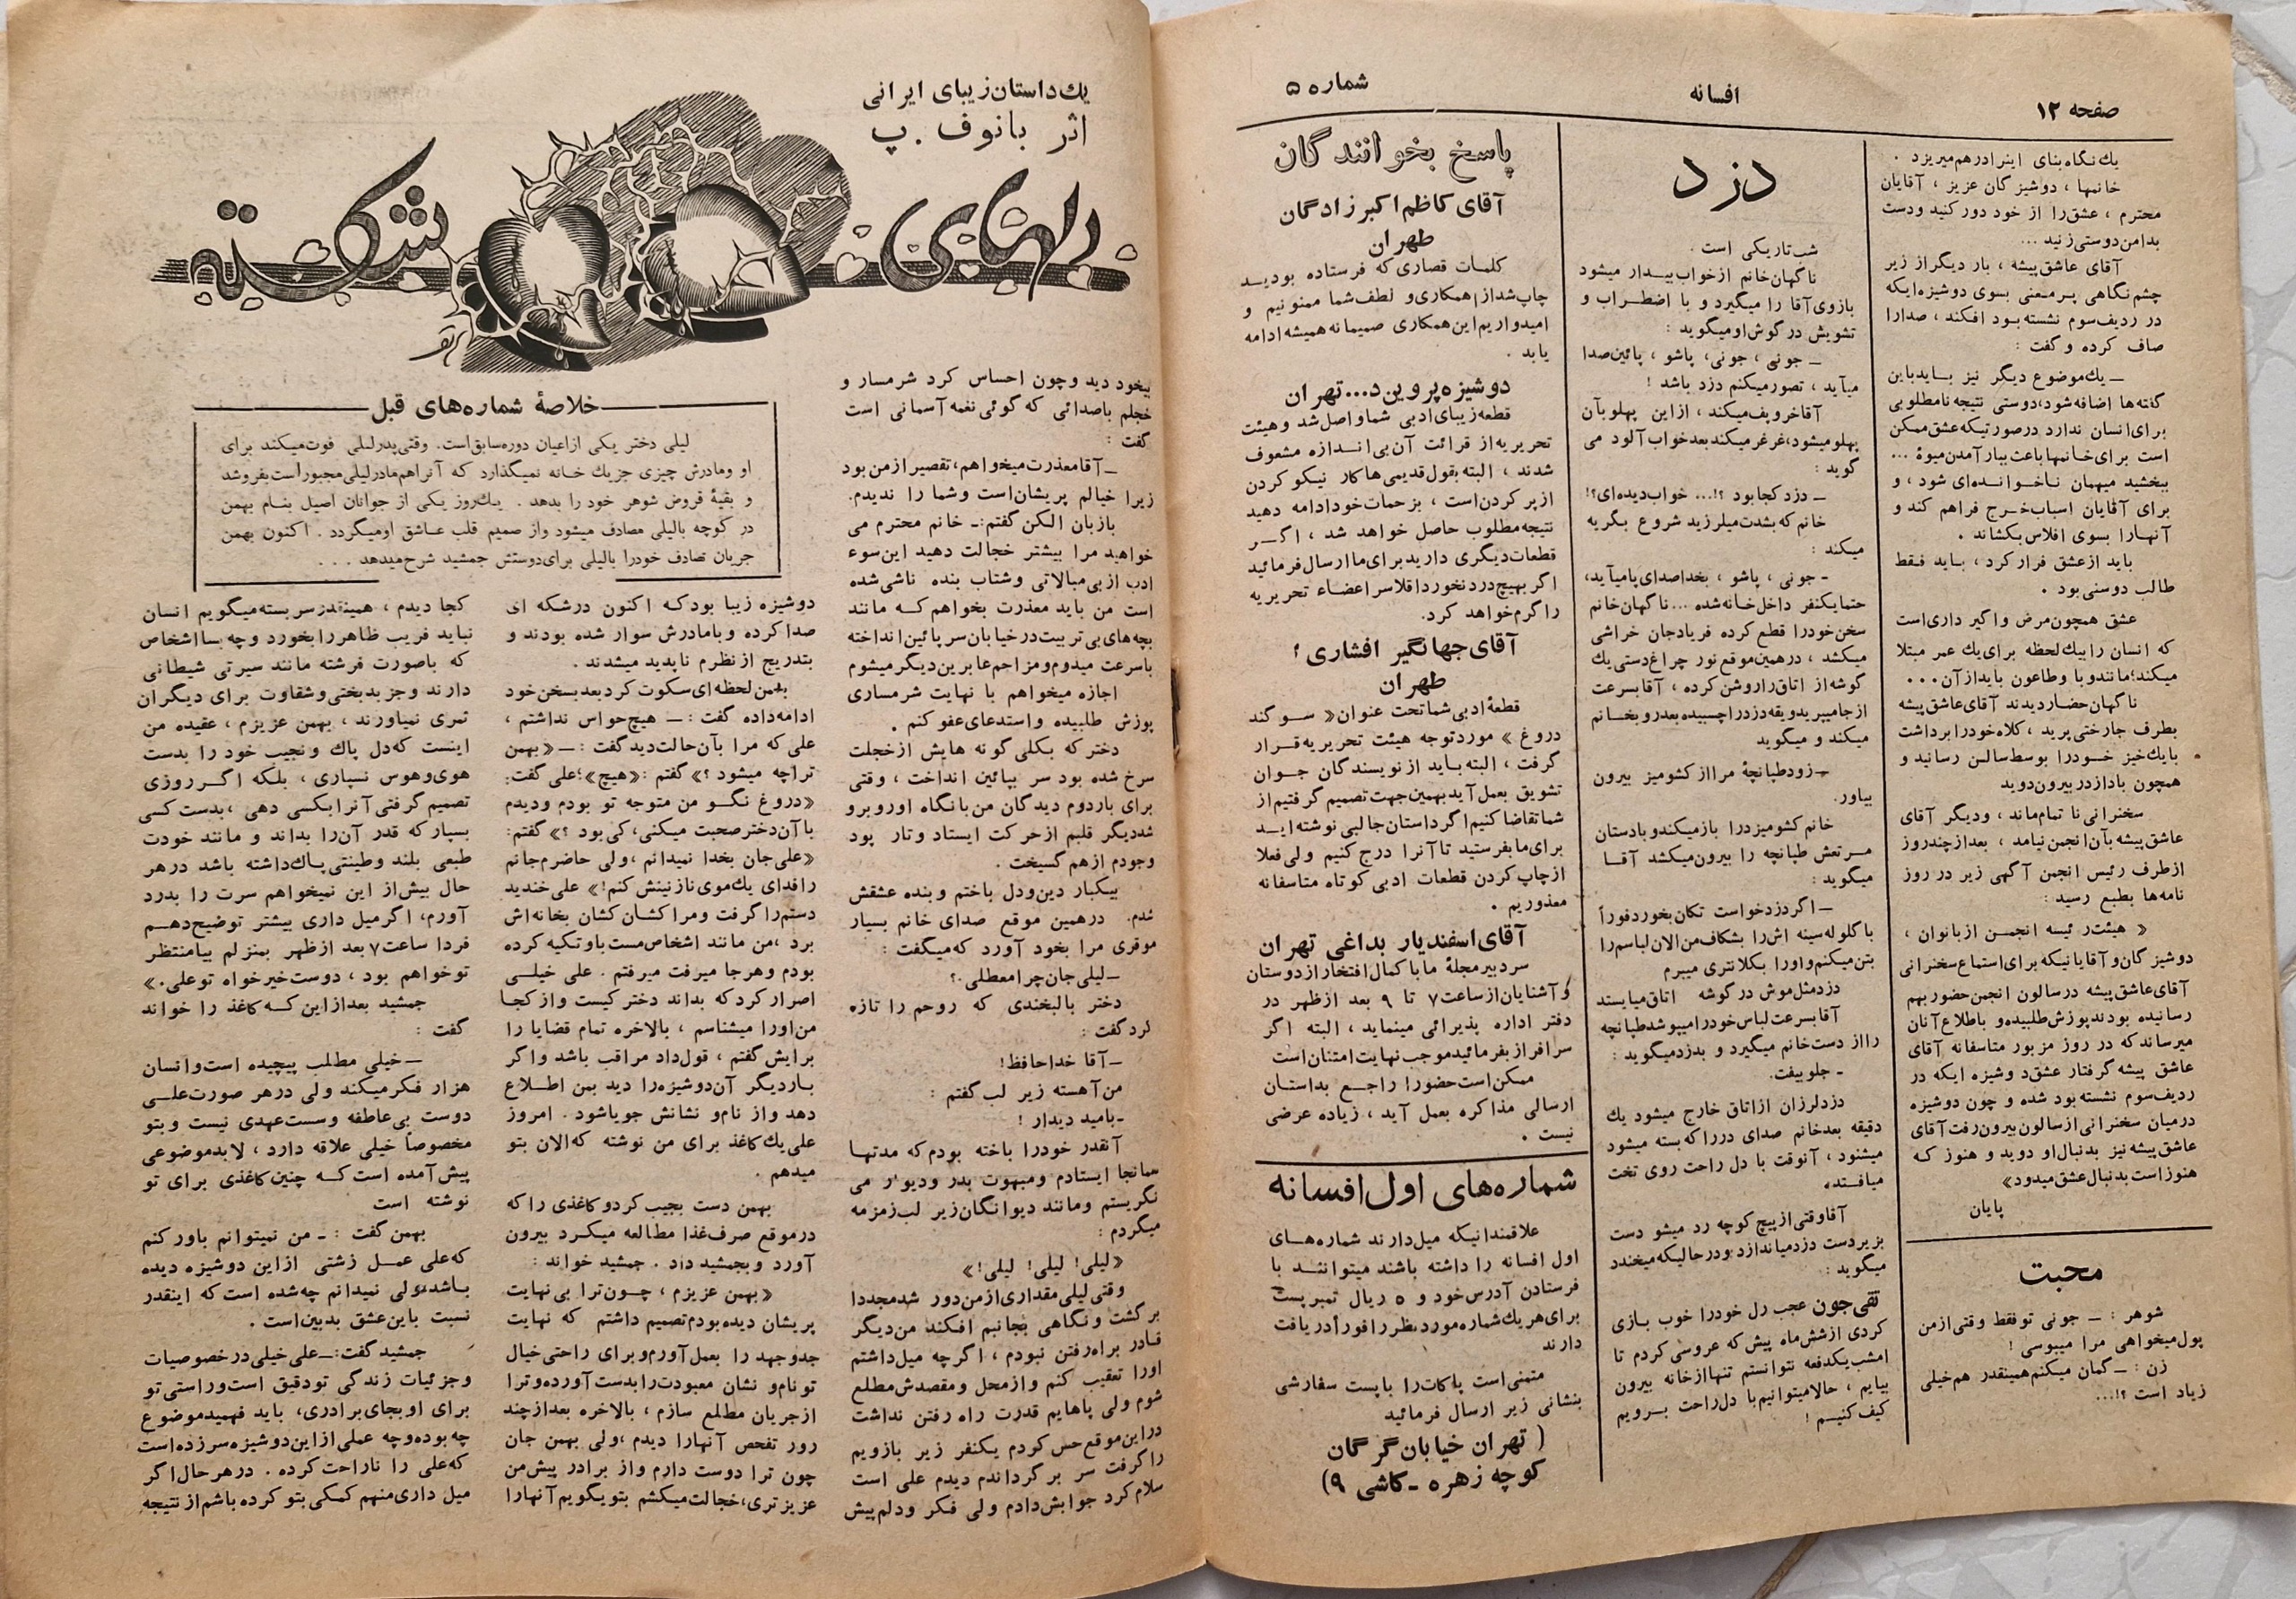 صفحه ۱۲
افسانه
شماره ۵
یك نگاه بنای اینرا درهم میریزد .
خانمها ، دوشیزگان عزیز ، آقایان
محترم ، عشق را از خود دور کنید ودست
بدامن دوستی زنید ...
آقای عاشق پیشه ، بار دیگر از زیر
چشم نگاهی پرمعنی بسوی دوشیزه ایکه
در ردیف سوم نشسته بود افکند ، صدارا
صاف کرده و گفت :
ــ یك موضوع دیگر نیز باید باین
گفته ها اضافه شود، دوستی نتیجه نامطلوبی
برای انسان ندارد درصورتیکه عشق ممکن
است برای خانمها باعث ببار آمدن میوهٔ ...
ببخشید میهمان ناخوانده ای شود ، و
برای آقایان اسباب خرج فراهم کند و
آنها را بسوی افلاس بکشاند .
باید از عشق فرار کرد ، باید فقط
طالب دوستی بود .
عشق همچون مرض واگیر داری است
که انسان را بیك لحظه برای یك عمر مبتلا
میکند؛ مانند وبا وطاعون باید از آن ...
ناگهان حضار دیدند آقای عاشق پیشه
بطرف جارختی پرید ، کلاه خودرا برداشت
بایك خیز خودرا بوسط سالن رسانید و
همچون باد از در بیرون دوید
سخنرانی نا تمام ماند ، ودیگر آقای
عاشق پیشه بآن انجمن نیامد ، بعد از چند روز
ازطرف رئیس انجمن آگهی زیر در روز
نامه ها بطبع رسید :
« هیئت رئیسه انجمن از بانوان ،
دوشیزگان و آقایانیکه برای استماع سخنرانی
آقای عاشق پیشه درسالون انجمن حضور بهم
رسانیده بودند پوزش طلبیده و باطلاع آنان
میرساند که در روز مزبور متاسفانه آقای
عاشق پیشه گرفتار عشق دوشیزه ایکه در
ردیف سوم نشسته بود شده و چون دوشیزه
درمیان سخنرانی از سالون بیرون رفت آقای
عاشق پیشه نیز بدنبال او دوید و هنوز که
هنوز است بدنبال عشق میدود»
پایان
محبت
شوهر : ــ جونی تو فقط وقتی از من
پول میخواهی مرا میبوسی !
زن : ــ گمان میکنم همینقدر هم خیلی
زیاد است ؟!...
دزد
شب تاریکی است .
ناگهان خانم از خواب بیدار میشود
بازوی آقا را میگیرد و با اضطراب و
تشویش در گوش او میگوید :
ــ جونی ، جونی، پاشو ، پائین صدا
میآید ، تصور میکنم دزد باشد !
آقا خر و پف میکند ، از این پهلو بآن
پهلو میشود، غرغر میکند بعد خواب آلود می
گوید :
ــ دزد کجا بود ؟!... خواب دیده ای؟!
خانم که بشدت میلرزید شروع بگریه
میکند :
ـ جونی ، پاشو ، بخدا صدای پا میآید،
حتما یکنفر داخل خانه شده ... ناگهان خانم
سخن خودرا قطع کرده فریاد جان خراشی
میکشد ، درهمین موقع نور چراغ دستی یك
گوشه از اتاق را روشن کرده ، آقا بسرعت
از جا میپرید و یقه دزد را چسبیده بعد رو بخانم
میکند و میگوید
ــ زود طپانچهٔ مرا از کشو میز بیرون
بیاور.
خانم کشو میز درا باز میکند و بادستان
مرتعش طپانچه را بیرون میکشد آقا
میگوید :
ــ اگر دزد خواست تکان بخورد فوراً
با گلوله سینه اش را بشکاف من الان لباسم را
بتن میکنم و اورا بکلانتری میبرم
دزد مثل موش در گوشه اتاق میایستد
آقا بسرعت لباس خودرا میپوشد طپانچه
را از دست خانم میگیرد و بدزد میگوید :
ـ جلو بیفت.
دزد لرزان از اتاق خارج میشود یك
دقیقه بعد خانم صدای در را که بسته میشود
میشنود ، آنوقت با دل راحت روی تخت
میافتد.
آقا وقتی از پیچ کوچه رد میشو دست
بزیر دست دزد میاندازد و در حالیکه میخندد
میگوید :
تقی جون عجب رل خودرا خوب بازی
کردی از شش ماه پیش که عروسی کردم تا
امشب یکدفعه نتوانستم تنها از خانه بیرون
بیایم ، حالا میتوانیم با دل راحت برویم
کیف کنیم !
پاسخ بخوانندگان
آقای کاظم اکبرزادگان
طهران
کلمات قصاری که فرستاده بودید
چاپ شد از همکاری و لطف شما ممنونیم و
امیدواریم این همکاری صمیمانه همیشه ادامه
یابد .
دوشیزه پروین د... تهران
قطعه زیبای ادبی شما واصل شد و هیئت
تحریریه از قرائت آن بی اندازه مشعوف
شدند ، البته بقول قدیمی ها کار نیکو کردن
از پر کردن است ، بزحمات خود ادامه دهید
نتیجه مطلوب حاصل خواهد شد ، اگر
قطعات دیگری دارید برای ما ارسال فرمائید
اگر بهیچ درد نخورد اقلا سر اعضاء تحریریه
را گرم خواهد کرد.
آقای جهانگیر افشاری !
طهران
قطعهٔ ادبی شما تحت عنوان « سوگند
دروغ » مورد توجه هیئت تحریریه قرار
گرفت ، البته باید از نویسندگان جوان
تشویق بعمل آید بهمین جهت تصمیم گرفتیم از
شما تقاضا کنیم اگر داستان جالبی نوشته اید
برای ما بفرستید تا آنرا درج کنیم ولی فعلا
از چاپ کردن قطعات ادبی کوتاه متاسفانه
معذوریم .
آقای اسفندیار بداغی تهران
سردبیر مجلهٔ ما با کمال افتخار از دوستان
و آشنایان از ساعت ۷ تا ۹ بعد از ظهر در
دفتر اداره پذیرائی مینماید ، البته اگر
سرافراز بفرمائید موجب نهایت امتنان است
ممکن است حضورا راجع بداستان
ارسالی مذاکره بعمل آید ، زیاده عرضی
نیست .
شماره های اول افسانه
علاقمندانیکه میل دارند شماره های
اول افسانه را داشته باشند میتوانند با
فرستادن آدرس خود و ۵ ریال تمبر پست
برای هر یك شماره مورد نظر را فوراً دریافت
دارند
متمنی است پاکات را با پست سفارشی
بنشانی زیر ارسال فرمائید
( تهران خیابان گرگان
کوچه زهره ـ کاشی ۹)
یك داستان زیبای ایرانی
اثر بانوف . پ
دلهای شکسته
خلاصهٔ شماره های قبل
لیلی دختر یکی از اعیان دوره سابق است. وقتی پدر لیلی فوت میکند برای
او ومادرش چیزی جز یك خانه نمیگذارد که آنرا هم مادر لیلی مجبور است بفروشد
و بقیهٔ قروض شوهر خود را بدهد . یك روز یکی از جوانان اصیل بنام بهمن
در کوچه با لیلی مصادف میشود واز صمیم قلب عاشق او میگردد . اکنون بهمن
جریان تصادف خودرا با لیلی برای دوستش جمشید شرح میدهد . . .
بیخود دید وچون احساس کرد شرمسار و
خجلم با صدائی که گوئی نغمه آسمانی است
گفت :
ــ آقا معذرت میخواهم، تقصیر از من بود
زیرا خیالم پریشان است وشما را ندیدم.
بازبان الکن گفتم:ـ خانم محترم می
خواهید مرا بیشتر خجالت دهید این سوء
ادب از بی مبالاتی و شتاب بنده ناشی شده
است من باید معذرت بخواهم که مانند
بچه های بی تربیت در خیابان سر پائین انداخته
با سرعت میدوم و مزاحم عابرین دیگر میشوم
اجازه میخواهم با نهایت شرمساری
پوزش طلبیده و استدعای عفو کنم .
دختر که بکلی گونه هایش از خجلت
سرخ شده بود سر بپائین انداخت ، وقتی
برای بار دوم دیدگان من با نگاه او روبرو
شد دیگر قلبم از حرکت ایستاد و تار پود
وجودم از هم گسیخت .
بیکبار دین ودل باختم و بنده عشقش
شدم. در همین موقع صدای خانم بسیار
موقری مرا بخود آورد که میگفت :
ــ لیلی جان چرا معطلی .؟
دختر با لبخندی که روحم را تازه
کرد گفت :
ــ آقا خدا حافظ!
من آهسته زیر لب گفتم :
ـ بامید دیدار !
آنقدر خودرا باخته بودم که مدتها
همانجا ایستادم ومبهوت بدر ودیوار می
نگریستم ومانند دیوانگان زیر لب زمزمه
میکردم :
«لیلی! لیلی! لیلی!»
وقتی لیلی مقداری از من دور شد مجددا
برگشت و نگاهی بجانبم افکند من دیگر
قادر براه رفتن نبودم ، اگر چه میل داشتم
اورا تعقیب کنم و از محل و مقصدش مطلع
شوم ولی پاهایم قدرت راه رفتن نداشت
دراین موقع حس کردم یکنفر زیر بازویم
را گرفت سر برگرداندم دیدم علی است
سلام کرد جوابش دادم ولی فکر ودلم پیش
دوشیزه زیبا بود که اکنون درشکه ای
صدا کرده و با مادرش سوار شده بودند و
بتدریج از نظرم ناپدید میشدند .
بهمن لحظه ای سکوت کرد بعد بسخن خود
ادامه داده گفت : ــ هیچ حواس نداشتم ،
علی که مرا بآن حالت دید گفت : ــ «بهمن
تراچه میشود ؟» گفتم :«هیچ»؛ علی گفت:
«دروغ نگو من متوجه تو بودم ودیدم
با آن دختر صحبت میکنی، کی بود ؟» گفتم:
«علی جان بخدا نمیدانم ، ولی حاضرم جانم
را فدای یك موی نازنینش کنم!» علی خندید
دستم را گرفت و مرا کشان کشان بخانه اش
برد ، من مانند اشخاص مست باو تکیه کرده
بودم وهر جا میرفت میرفتم . علی خیلی
اصرار کرد که بداند دختر کیست و از کجا
من اورا میشناسم ، بالاخره تمام قضایا را
برایش گفتم ، قول داد مراقب باشد و اگر
بار دیگر آن دوشیزه را دید بمن اطلاع
دهد و از نام و نشانش جویا شود . امروز
علی یك کاغذ برای من نوشته که الان بتو
میدهم .
بهمن دست بجیب کرد و کاغذی را که
در موقع صرف غذا مطالعه میکرد بیرون
آورد و بجمشید داد . جمشید خواند :
«بهمن عزیزم ، چون ترا بی نهایت
پریشان دیده بودم تصمیم داشتم که نهایت
جد و جهد را بعمل آورم و برای راحتی خیال
تو نام و نشان معبودت را بدست آورده و ترا
از جریان مطلع سازم ، بالاخره بعد از چند
روز تفحص آنها را دیدم ، ولی بهمن جان
چون ترا دوست دارم و از برادر پیش من
عزیز تری، خجالت میکشم بتو بگویم آنهارا
کجا دیدم ، همینقدر سر بسته میگویم انسان
نباید فریب ظاهر را بخورد و چه بسا اشخاص
که باصورت فرشته مانند سیرتی شیطانی
دارند و جز بدبختی و شقاوت برای دیگران
ثمری نمیاورند ، بهمن عزیزم ، عقیده من
اینست که دل پاك و نجیب خود را بدست
هوی و هوس نسپاری ، بلکه اگر روزی
تصمیم گرفتی آنرا بکسی دهی ، بدست کسی
بسپار که قدر آن را بداند و مانند خودت
طبعی بلند و طینتی پاك داشته باشد در هر
حال بیش از این نمیخواهم سرت را بدرد
آورم، اگر میل داری بیشتر توضیح دهم
فردا ساعت ۷ بعد از ظهر بمنزلم بیا منتظر
تو خواهم بود ، دوست خیرخواه تو علی .»
جمشید بعد از این که کاغذ را خواند
گفت :
ــ خیلی مطلب پیچیده است و انسان
هزار فکر میکند ولی در هر صورت علی
دوست بی عاطفه و سست عهدی نیست و بتو
مخصوصاً خیلی علاقه دارد ، لابد موضوعی
پیش آمده است که چنین کاغذی برای تو
نوشته است
بهمن گفت : ــ من نمیتوانم باور کنم
که علی عمل زشتی از این دوشیزه دیده
باشد ولی نمیدانم چه شده است که اینقدر
نسبت باین عشق بدبین است .
جمشید گفت:ــ علی خیلی در خصوصیات
و جزئیات زندگی تو دقیق است و راستی تو
برای او بجای برادری، باید فهمید موضوع
چه بوده و چه عملی از این دوشیزه سر زده است
که علی را ناراحت کرده . در هر حال اگر
میل داری منهم کمکی بتو کرده باشم از نتیجه